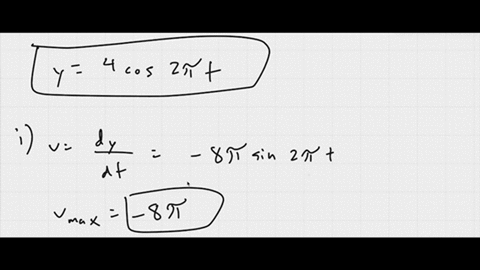 y = 4 cos 2πt
i) v = dy/dt = -8π sin 2πt
vmax = -8π